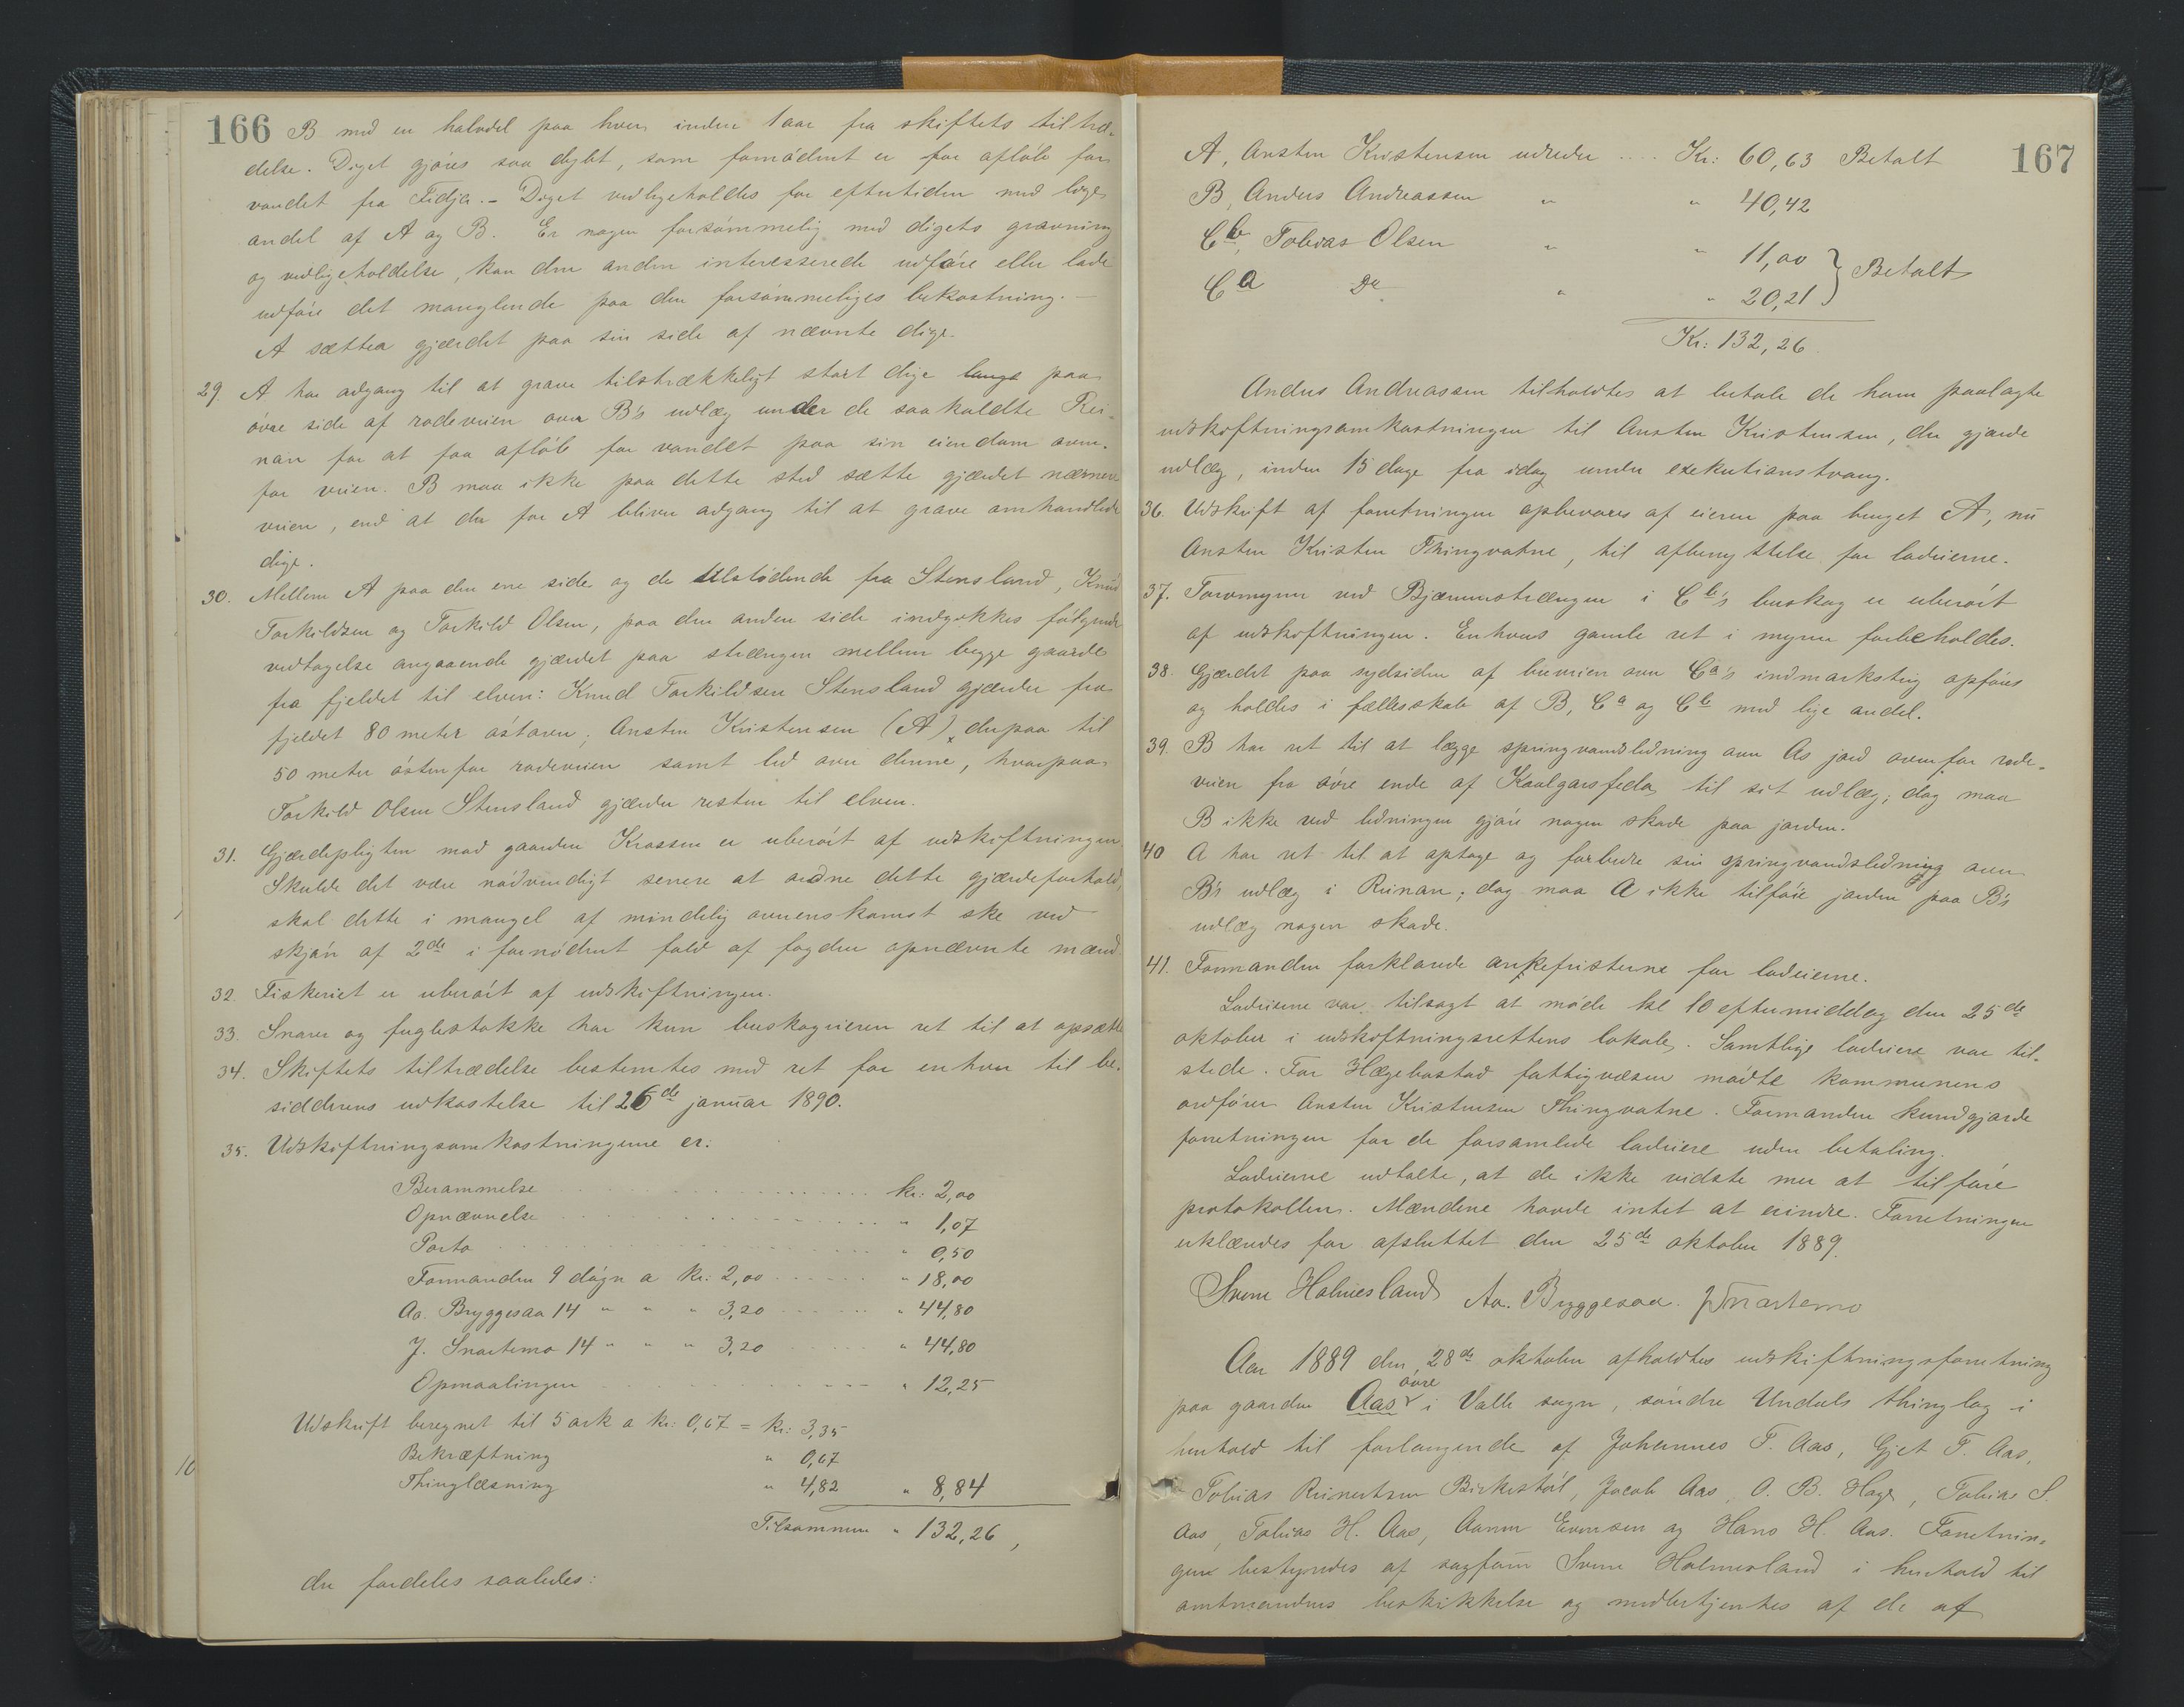 166 B med en halvdel paa hver inden 1 aar fra skiftets tiltræ-
delse. Diget gjøres saa dybt, som fornødent er for afløb for
vandet fra Fidja. - Diget vedligeholdes for eftertiden med lige
andel af A og B. Er nogen forsømmelig med digets gravning
og vedligeholdelse, kan den anden interesserede udføre eller lade
udføre det manglende paa den forsømmeliges bekostning. -
A sætter gjærdet paa sin side af nævnte dige.
29. A har adgang til at grave tilstrækkeligt stort dige langs paa
øvre side af rodeveien over B's udlæg under de saakaldte Rei-
nan for at faa afløb for vandet paa sin eiendom oven-
for veien. B maa ikke paa dette sted sætte gjærdet nærmere
veien, end at der for A bliver adgang til at grave omhandlede
dige.
30. Mellem A paa den ene side og de tilstødende fra Stensland, Knud
Torkildsen og Torkild Olsen, paa den anden side indgikkes følgende
vedtagelse angaaende gjærdet paa strængen mellem begge gaarde
fra fjeldet til elven: Knud Torkildsen Stensland gjærder fra
fjeldet 80 meter østover, Ansten Kristensen (A) derpaa til
50 meter østenfor rodeveien samt led over denne, hvorpaa
Torkild Olsen Stensland gjærder resten til elven.
31. Gjærdepligten mod gaarden Krossen er uberørt af udskiftningen.
Skulde det være nødvendigt senere at ordne dette gjærdeforhold,
skal dette i mangel af mindelig overenskomst ske ved
skjøn af 2de i fornødent fald af fogden opnævnte mænd.
32. Fiskeriet er uberørt af udskiftningen.
33. Snarer og fuglestokke har kun buskogeieren ret til at opsætte
34. Skiftets tiltrædelse bestemtes med ret for enhver til be-
sidderens udkastelse til 26de januar 1890.
35. Udskiftningsomkostningerne er:
Berammelse kr: 2,00
Opnævnelse " 1,07
Porto " 0,50
Formanden 9 døgn a kr: 2,00 " 18,00
Aa. Bryggesaa 14 " " " 3,20 " 44,80
J. Snartemo 14 " " " 3,20 " 44,80
Opmaalingen " 12,25
Udskrift beregnet til 5 ark a kr: 0,67 = kr: 3,35
Bekræftning " 0,67
Thinglæsning " 4,82 " 8,84
Tilsammen " 132,26,
der fordeles saaledes:
167
A, Ansten Kristensen udreder .... Kr: 60,63 Betalt
B, Anders Andreassen " " 40,42
Cb, Tobias Olsen " " 11,00 } Betalt
Ca Do " " 20,21
Kr: 132,26
Anders Andreassen tilholdtes at betale de ham paalagte
udskiftningsomkostninger til Ansten Kristensen, der gjorde
udlæg, inden 15 dage fra idag under exekutionstvang.
36. Udskrift af forretningen opbevares af eieren paa bruget A, nu
Ansten Kristen Thingvatne, til afbenyttelse for lodeierne.
37. Torvmyren ved Bjørnmostrængen i Cb's buskog er uberørt
af udskiftningen. Enhvers gamle ret i myren forbeholdes.
38. Gjærdet paa sydsiden af buveien over Ca's indmarksteig opføres
og holdes i fællesskab af B, Ca og Cb med lige andel.
39. B har ret til at lægge springvandsledning over As jord ovenfor rode-
veien fra øvre ende af Kaalgarsfeda til sit udlæg; dog maa
B ikke ved ledningen gjøre nogen skade paa jorden.
40 A har ret til at optage og forbedre sin springvandsledning over
B's udlæg i Reinan; dog maa A ikke tilføie jorden paa B's
udlæg nogen skade.
41. Formanden forklarede ankefristerne for lodeierne.
Lodeierne var tilsagt at møde kl 10 eftermiddag den 25de
oktober i udskiftningsrettens lokale. Samtlige lodeiere var til-
stede. For Hægebostad fattigvæsen mødte kommunens
ordfører Ansten Kristensen Thingvatne. Formanden kundgjorde
forretningen for de forsamlede lodeiere uden betaling.
Lodeierne udtalte, at de ikke vidste mer at tilføre
protokollen. Mændene havde intet at erindre. Forretningen
erklæredes for afsluttet den 25de oktober 1889.
Svenn Holmesland Aa. Bryggesaa. J Snartemo
Aar 1889 den 28de oktober afholdtes udskiftningsforretning
paa gaarden Aas øvre i Valle sogn, søndre Undals thinglag i
henhold til forlangende af Johannes T. Aas, Gjet T. Aas,
Tobias Reinertsen Birkestøl, Jacob Aas, O. B. Hage, Tobias S.
Aas, Tobias H. Aas, Aanen Evensen og Hans H. Aas. Forretnin-
gen bestyredes af sagfører Svenn Holmesland i henhold til
amtmandens beskikkelse og medbetjentes af de af